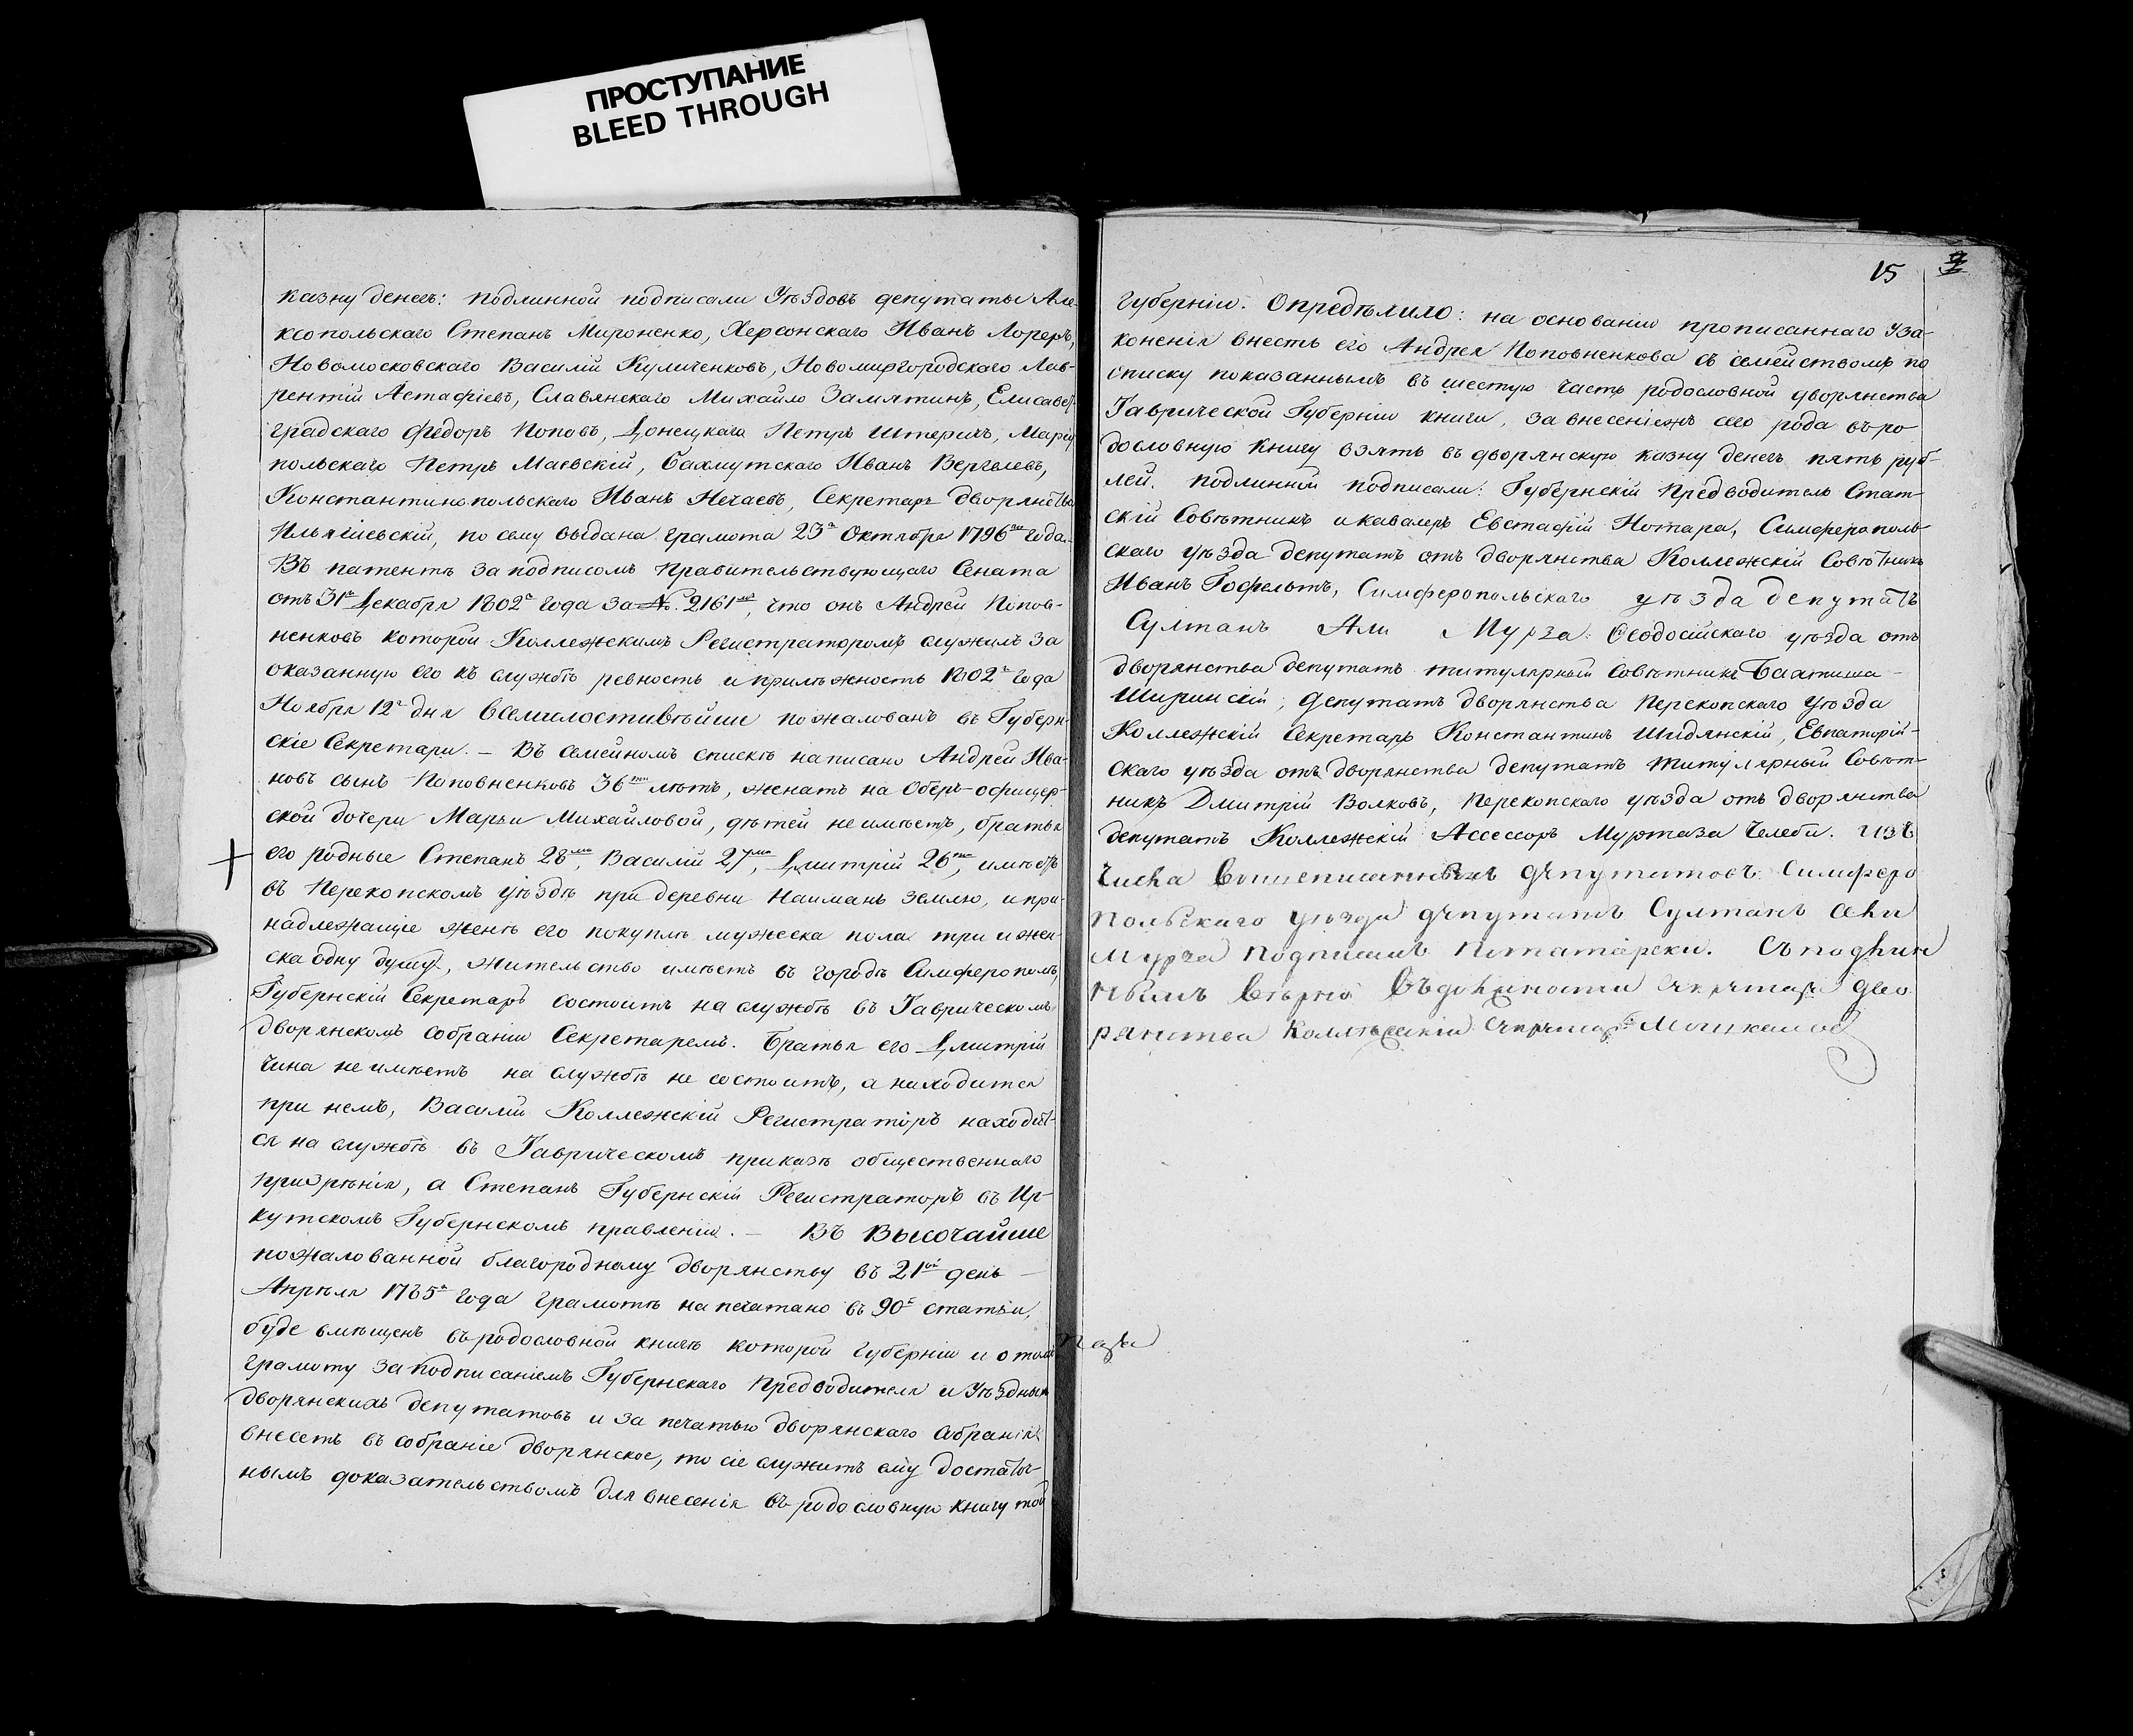 ПРОСТУПАНИЕ
BLEED THROUGH
казну денегъ: подлинной подписали Уѣздовъ депутаты Але-
ксопольскаго Степанъ Мироненко, Херсонскаго Иванъ Лореръ,
Новомосковскаго Василій Куличенковъ, Новомиргородскаго Лав-
рентій Астафіевъ, Славянскаго Михайло Замятинъ, Елисавет-
градскаго Федоръ Поповъ, Донецкаго Петръ Штеричъ, Маріу
польскаго Петръ Маевскій, Бахмутскаго Иванъ Вергелевъ,
Константинопольскаго Иванъ Нечаевъ, Секретарь дворянства
Ильяшевскій, по сему выдана грамота 23го Октября 1796го года.
Въ патентѣ за подписомъ Правительствующаго Сената
отъ 31го Декабря 1802го года за №. 2161мъ, что онъ Андрей Попов-
ненковъ которой Коллежскимъ Регистраторомъ служилъ за
оказанную его къ службѣ ревность и прилѣжность 1802го года
Ноября 12го дня Всемилостивѣйше пожалованъ въ Губерн-
скіе Секретари. – Въ семейномъ спискѣ написано Андрей Ива-
новъ сынъ Поповненковъ 36ти лѣтъ, женатъ на Оберъ-офицер-
ской дочери Марьи Михайловой, дѣтей не имѣетъ, братья
его родные Степанъ 28ми, Василій 27ми, Дмитрій 26ти, имѣетъ
въ Перекопскомъ уѣздѣ при деревни Найманъ землю, и при-
надлежащіе женѣ его покупкѣ мужеска пола три и жен-
ска одну душу, жительство имѣетъ въ городѣ Симферополѣ,
Губернскій Секретарь состоитъ на службѣ въ Таврическомъ
дворянскомъ собраніи Секретаремъ. Братья его Дмитрій
чина не имѣетъ на службѣ не состоитъ, а находится
при немъ, Василій Коллежскій Регистраторъ находит-
ся на службѣ въ Таврическомъ приказѣ общественнаго
призрѣнія, а Степанъ Губернскій Регистраторъ въ Ир-
кутскомъ Губернскомъ правленіи. – Въ Высочайше
пожалованной благородному дворянству въ 21й день
Апрѣля 1785го года грамотѣ напечатано въ 90й статьи,
буде вмѣщенъ въ родословной книгѣ которой губерніи и о томъ
грамоту за подписаніемъ Губернскаго Предводителя и Уѣздныхъ
дворянскихъ депутатовъ и за печатью дворянскаго собранія
внесетъ въ собраніе дворянское, то сіе служитъ ему достаточ-
нымъ доказательствомъ для внесенія въ родословную книгу той
15
губерніи. Опредѣлило: на основаніи прописаннаго уза-
коненія внесть его Андрея Поповненкова съ семействомъ по
списку показаннымъ въ шестую часть родословной дворянства
Таврической Губерніи книги, за внесеніемъ сего рода въ ро
дословную книгу взять въ дворянскую казну денегъ пять руб-
лей. Подлинной подписали: Губернскій Предводитель Стат-
скій Совѣтникъ и кавалеръ Евстафій Нотара, Симферополь-
скаго уѣзда депутатъ отъ дворянства Коллежскій Совѣтникъ
Иванъ Гофельтъ, Симферопольскаго уѣзда депутатъ
Султанъ Али Мурза: Ѳеодосійскаго уѣзда отъ
дворянства депутатъ титулярный совѣтникъ Бахтиша
Ширинскій, депутатъ дворянства Перекопскаго уѣзда
Коллежскій Секретарь Константинъ Шидянскій, Евпаторій-
скаго уѣзда отъ дворянства депутатъ титулярный Совѣт-
никъ Дмитрій Волковъ, Перекопскаго уѣзда отъ дворянства
депутатъ Коллежскій Ассессоръ Муртаза Челеби. Изъ
числа вышеписанныхъ депутатовъ Симферо
польскаго уѣзда депутатъ Султанъ Али
Мурза подписалъ потатарски. Съ подлин
нымъ вѣрно: Въ должности Секретаря дво
рянства Коллежскій Секретарь